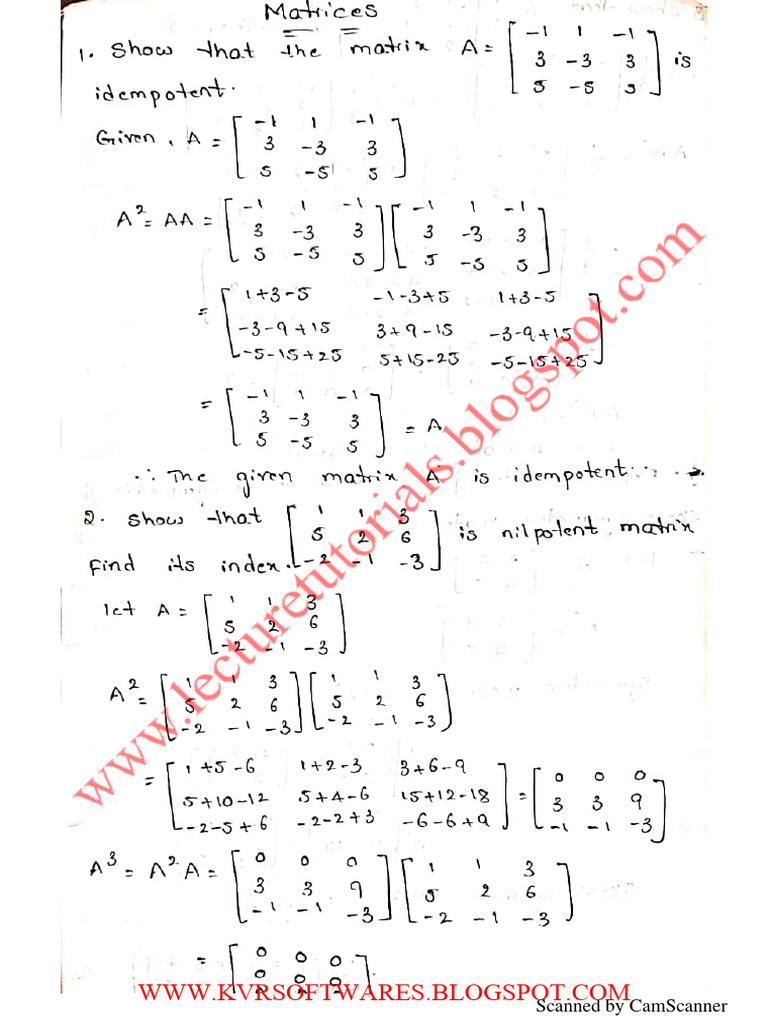 Matrices
1. Show that the matrix A = [ -1 1 -1
3 -3 3
5 -5 5 ] is
idempotent.
Given, A = [ -1 1 -1
3 -3 3
5 -5 5 ]
A² = AA = [ -1 1 -1
3 -3 3
5 -5 5 ] [ -1 1 -1
3 -3 3
5 -5 5 ]
= [ 1+3-5 -1-3+5 1+3-5
-3-9+15 3+9-15 -3-9+15
-5-15+25 5+15-25 -5-15+25 ]
= [ -1 1 -1
3 -3 3
5 -5 5 ] = A
∴ The given matrix A is idempotent.
2. Show that [ 1 1 3
5 2 6
-2 -1 -3 ] is nilpotent matrix
find its index.
let A = [ 1 1 3
5 2 6
-2 -1 -3 ]
A² = [ 1 1 3
5 2 6
-2 -1 -3 ] [ 1 1 3
5 2 6
-2 -1 -3 ]
= [ 1+5-6 1+2-3 3+6-9
5+10-12 5+4-6 15+12-18
-2-5+6 -2-2+3 -6-6+9 ] = [ 0 0 0
3 3 9
-1 -1 -3 ]
A³ = A²A = [ 0 0 0
3 3 9
-1 -1 -3 ] [ 1 1 3
5 2 6
-2 -1 -3 ]
= [ 0 0 0
0 0 0 ]
www.lecturetutorials.blogspot.com
WWW.KVRSOFTWARES.BLOGSPOT.COM
Scanned by CamScanner